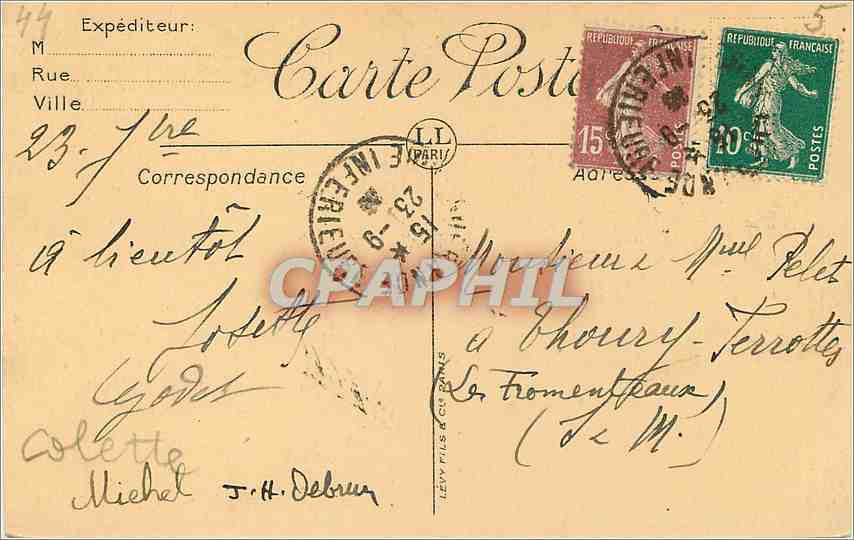 44
5.
Expéditeur:
M
Rue
Ville
Carte Posta
REPUBLIQUE FRANÇAISE
15
POSTES
REPUBLIQUE FRANÇAISE
10c
POSTES
23. 7bre
LL
PARIS
Correspondance
Adresse
INFERIEURE
15
23 -9
CPAPHIL
à bientôt
Josette
Godet
Colette
Michel J.-H. Debrun
Monsieur & Mme Pelet
à Thoury-Ferrottes
(Les Fromenteaux)
(S & M.)
LÉVY FILS & Cie PARIS